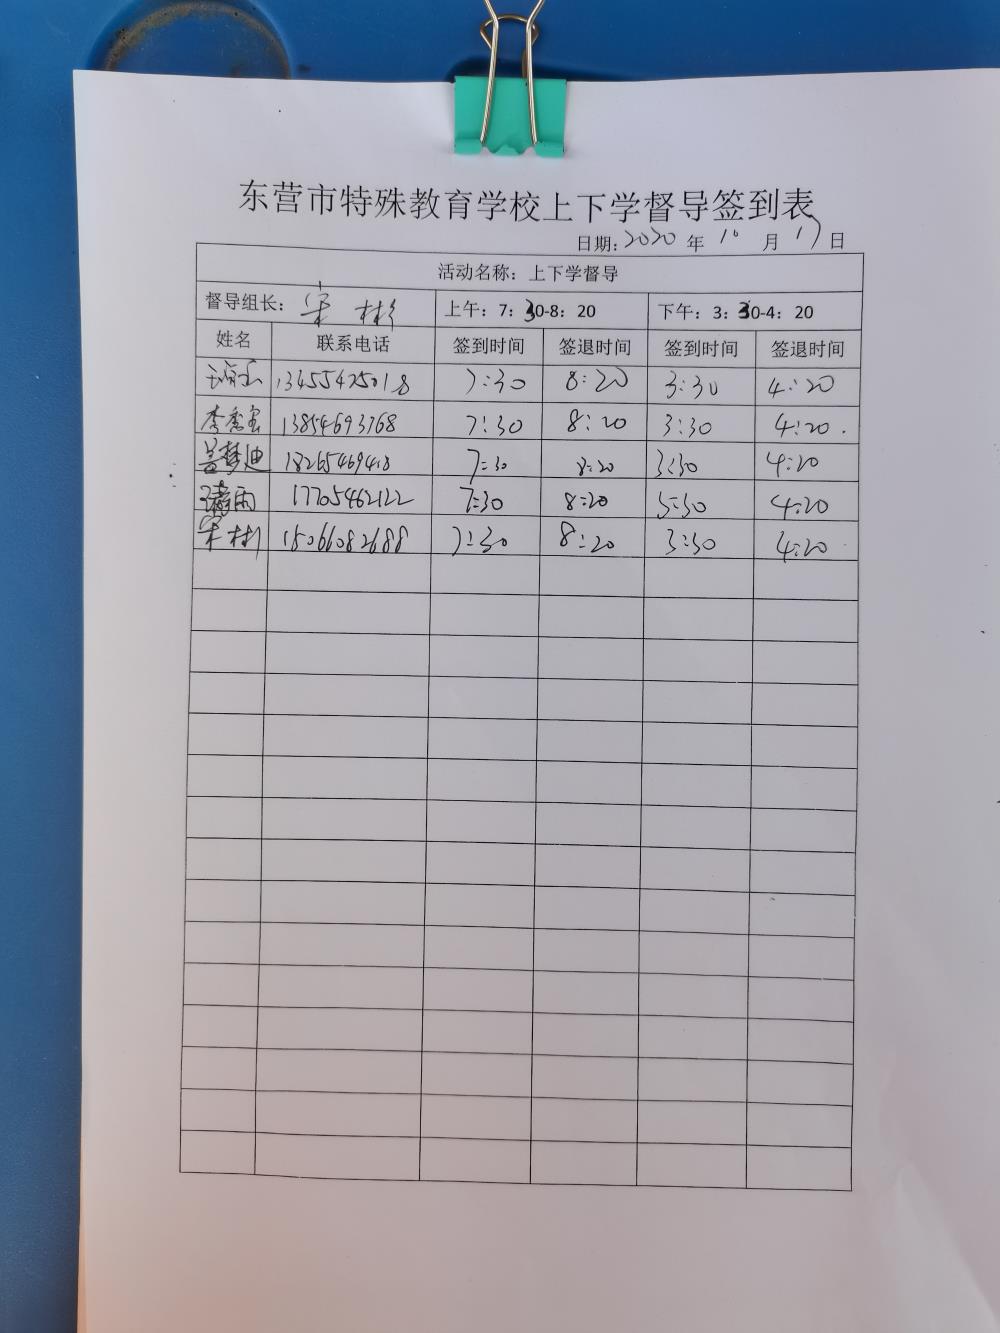 东营市特殊教育学校上下学督导签到表
日期:2020 年 10 月 17 日
活动名称：上下学督导
督导组长：宋彬 上午：7：30-8：20 下午：3：30-4：20
姓名 联系电话 签到时间 签退时间 签到时间 签退时间
13455425018 7:30 8:20 3:30 4:20
李秀宝 13854693768 7:30 8:20 3:30 4:20.
盖梦迪 18265469418 7:30 8:20 3:30 4:20
17705462122 7:30 8:20 3:30 4:20
宋彬 15066082688 7:30 8:20 3:30 4:20